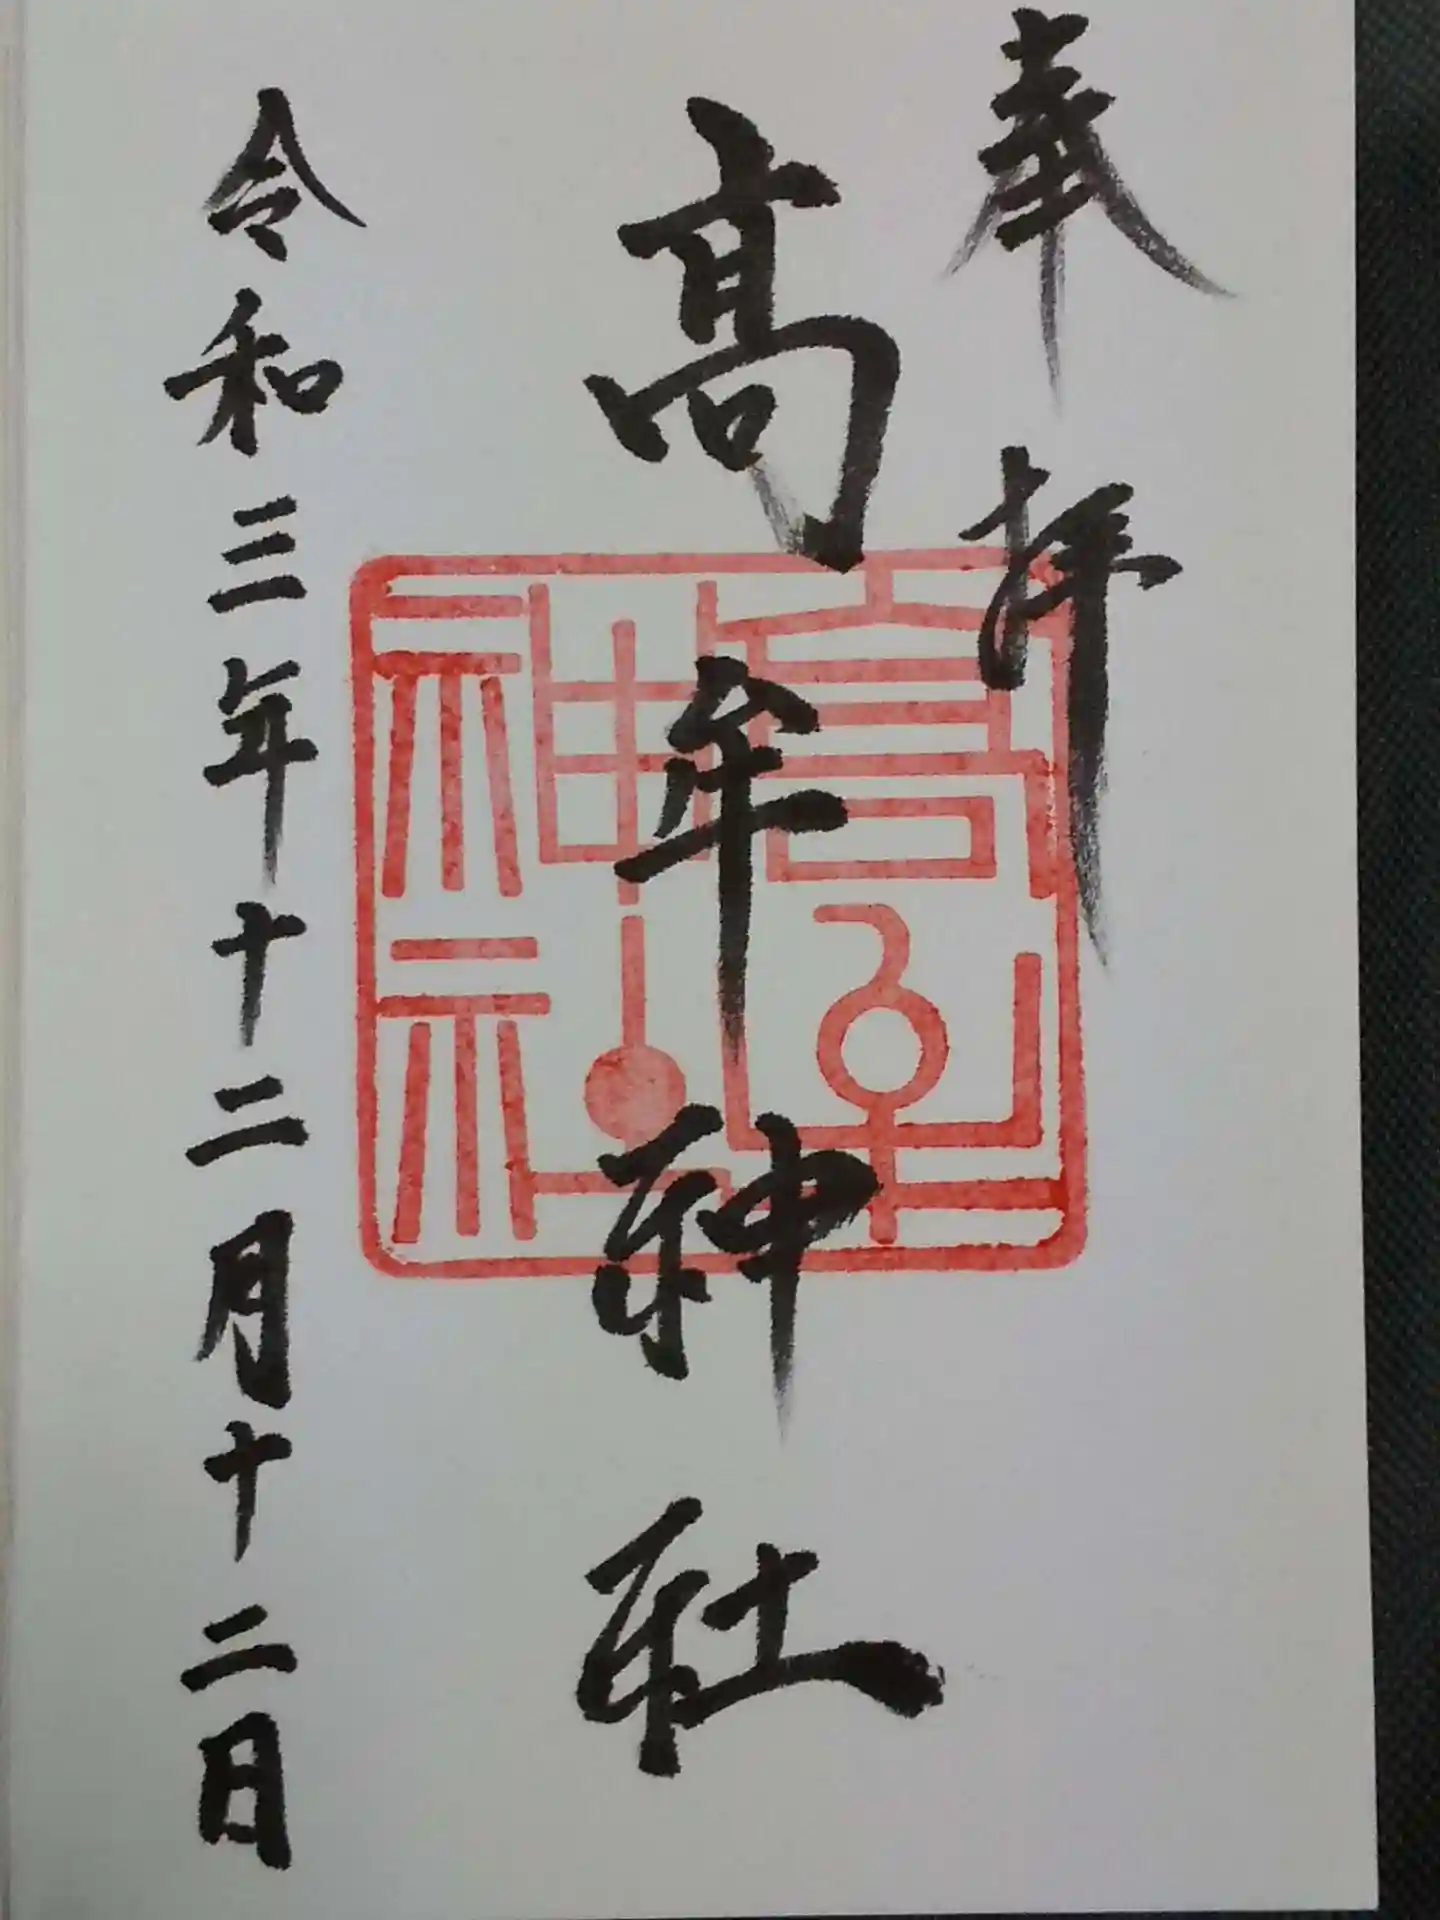 奉拝
高牟神社
高牟神社
令和三年十二月十二日